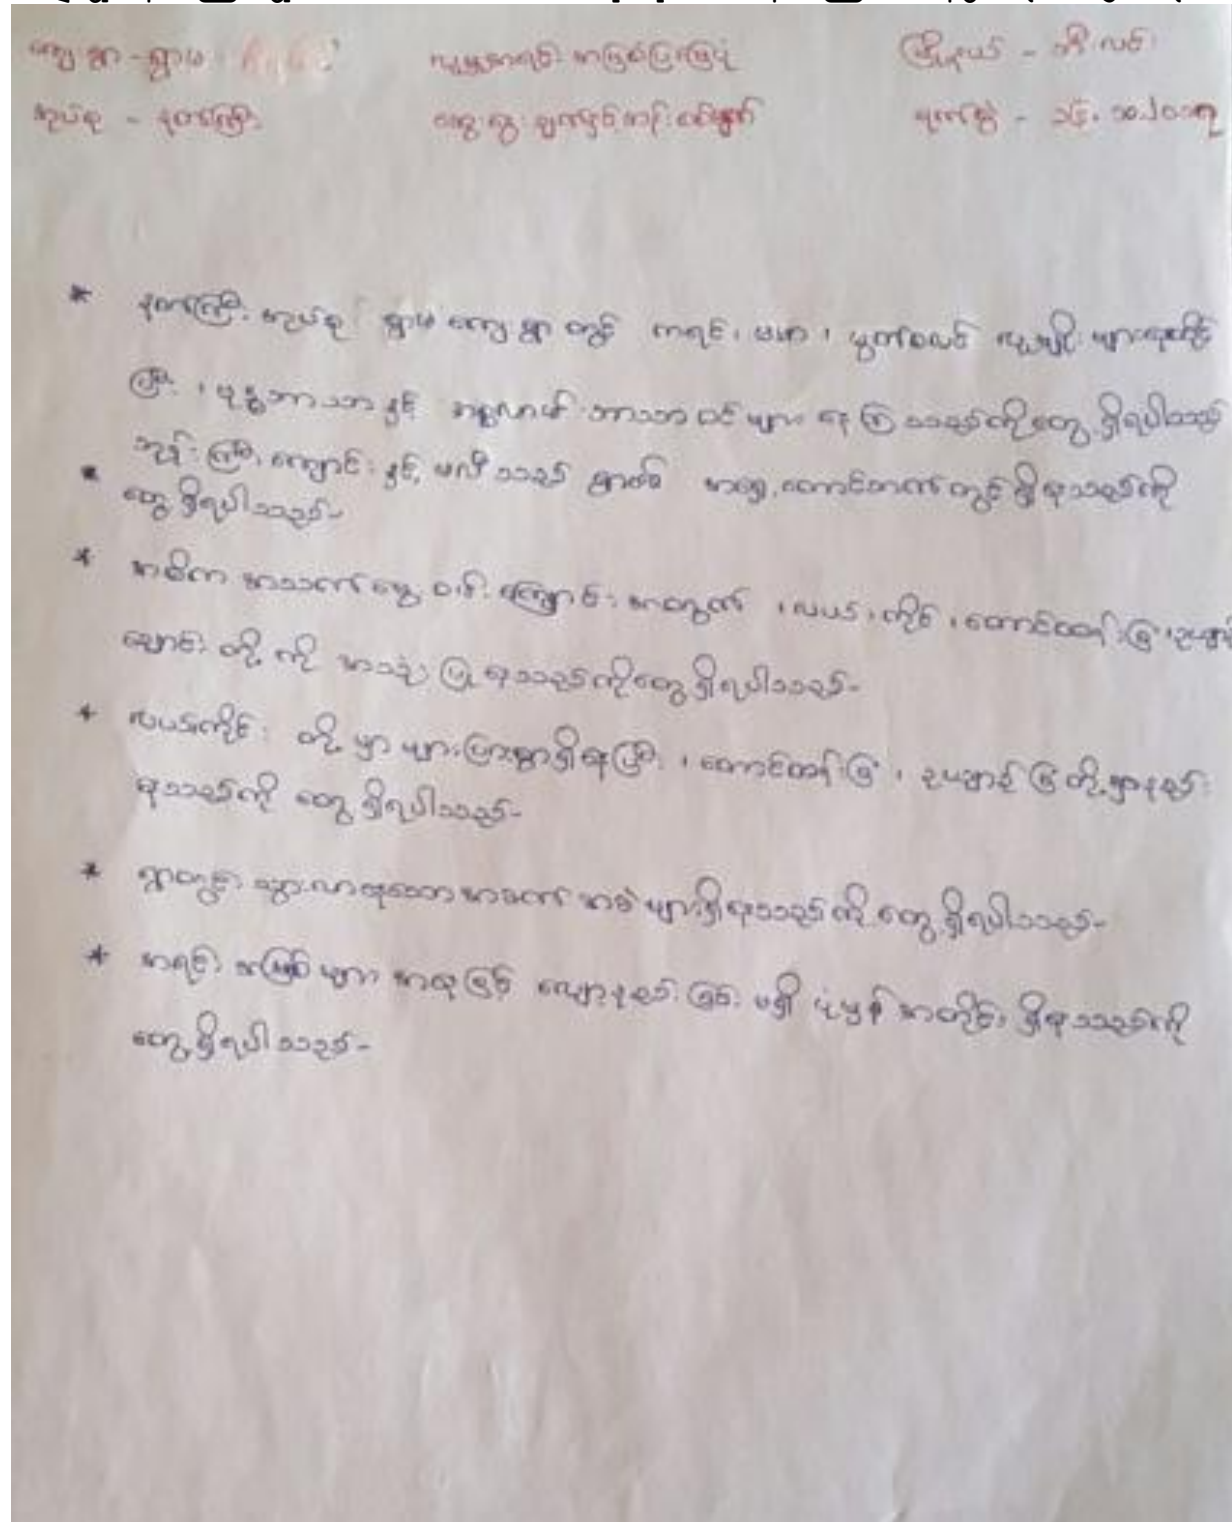 ကျေးရွာ - ရွာမ
လူမှုအရင်းအမြစ်ပြမြေပုံ
မြို့နယ် - ဘီးလင်း
အုပ်စု - နတ်ကြီး
ဆွေးနွေးချက်နှင့်
ရက်စွဲ -
* နတ်ကြီးအုပ်စု ရွာမကျေးရွာတွင် ကရင်၊ ဗမာ၊ မွတ်စလင် လူမျိုးများနေထိုင်
ပြီး၊ ဗုဒ္ဓဘာသာနှင့် အစ္စလာမ်ဘာသာဝင်များ နေကြသည်ကိုတွေ့ရှိရပါသည်
* ဘုန်းကြီးကျောင်းနှင့် ဗလီသည် ရွာ၏ အရှေ့တောင်ဘက်တွင်ရှိနေသည်ကို
တွေ့ရှိရပါသည်-
* အဓိက အသက်မွေးဝမ်းကျောင်းအတွက် ၊လယ်၊ကိုင်း၊တောင်ယာခြံ၊ဥယျာဉ်
တို့ကို အသုံးပြုနေသည်ကိုတွေ့ရှိရပါသည်-
* လယ်ကိုင်းတို့မှာ များပြားစွာရှိနေပြီး၊ ဥယျာဉ်ခြံတို့မှာနည်း
နေသည်ကို တွေ့ရှိရပါသည်-
* ရွာတွင် သွားလာနေသောအခက်အခဲများရှိနေသည်ကို တွေ့ရှိရပါသည်-
* အရင်းအမြစ်များ အနေဖြင့် လျော့နည်းခြင်းမရှိ ပုံမှန်အတိုင်း ရှိနေသည်ကို
တွေ့ရှိရပါသည်-